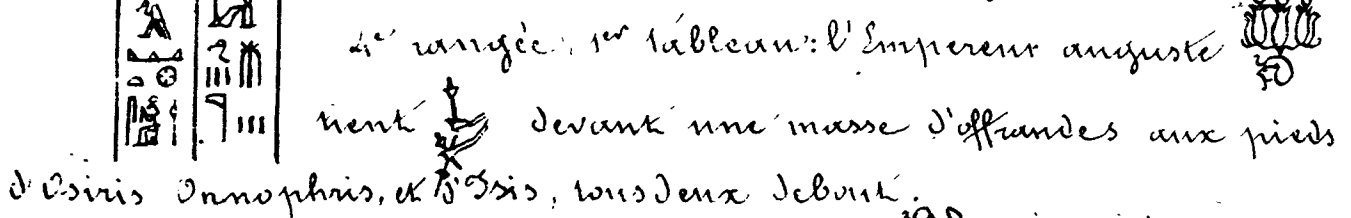 4e rangée: 1er tableau: l'Empereur auguste
tient devant une masse d'offrandes aux pieds
d'Osiris Onnophris, et d'Isis, tous deux debout.